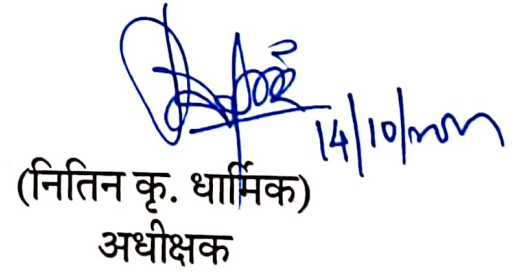 14/10/
(नितिन कृ. धार्मिक)
अधीक्षक